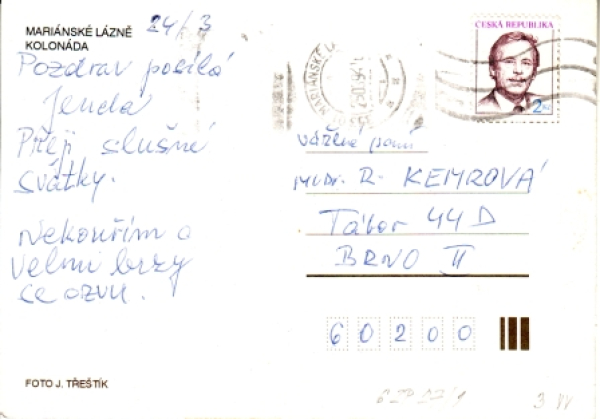 MARIÁNSKÉ LÁZNĚ
KOLONÁDA
24/3
Pozdrav posílá
Jenda
Přeji slušné
svátky.
Nekouřím a
velmi brzy
se ozvu.
FOTO J. TŘEŠTÍK
MARIÁNSKÉ LÁ
ČESKÁ REPUBLIKA
2 Kč
vážená paní
MUDr. R. KEMROVÁ
Tábor 44D
BRNO II
60200